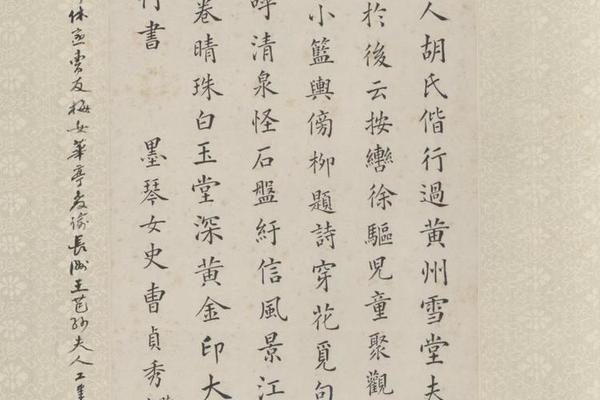 人胡氏偕行過黃州雪堂夫
於後云按轡徐驅兒童聚觀
小籃輿傍柳題詩穿花覓句
呼清泉怪石盤紆信風景江
卷晴珠白玉堂深黃金印大
行書 墨琴女史曹貞秀
休 雲友梅女華亭 長洲王芑孫夫人工書